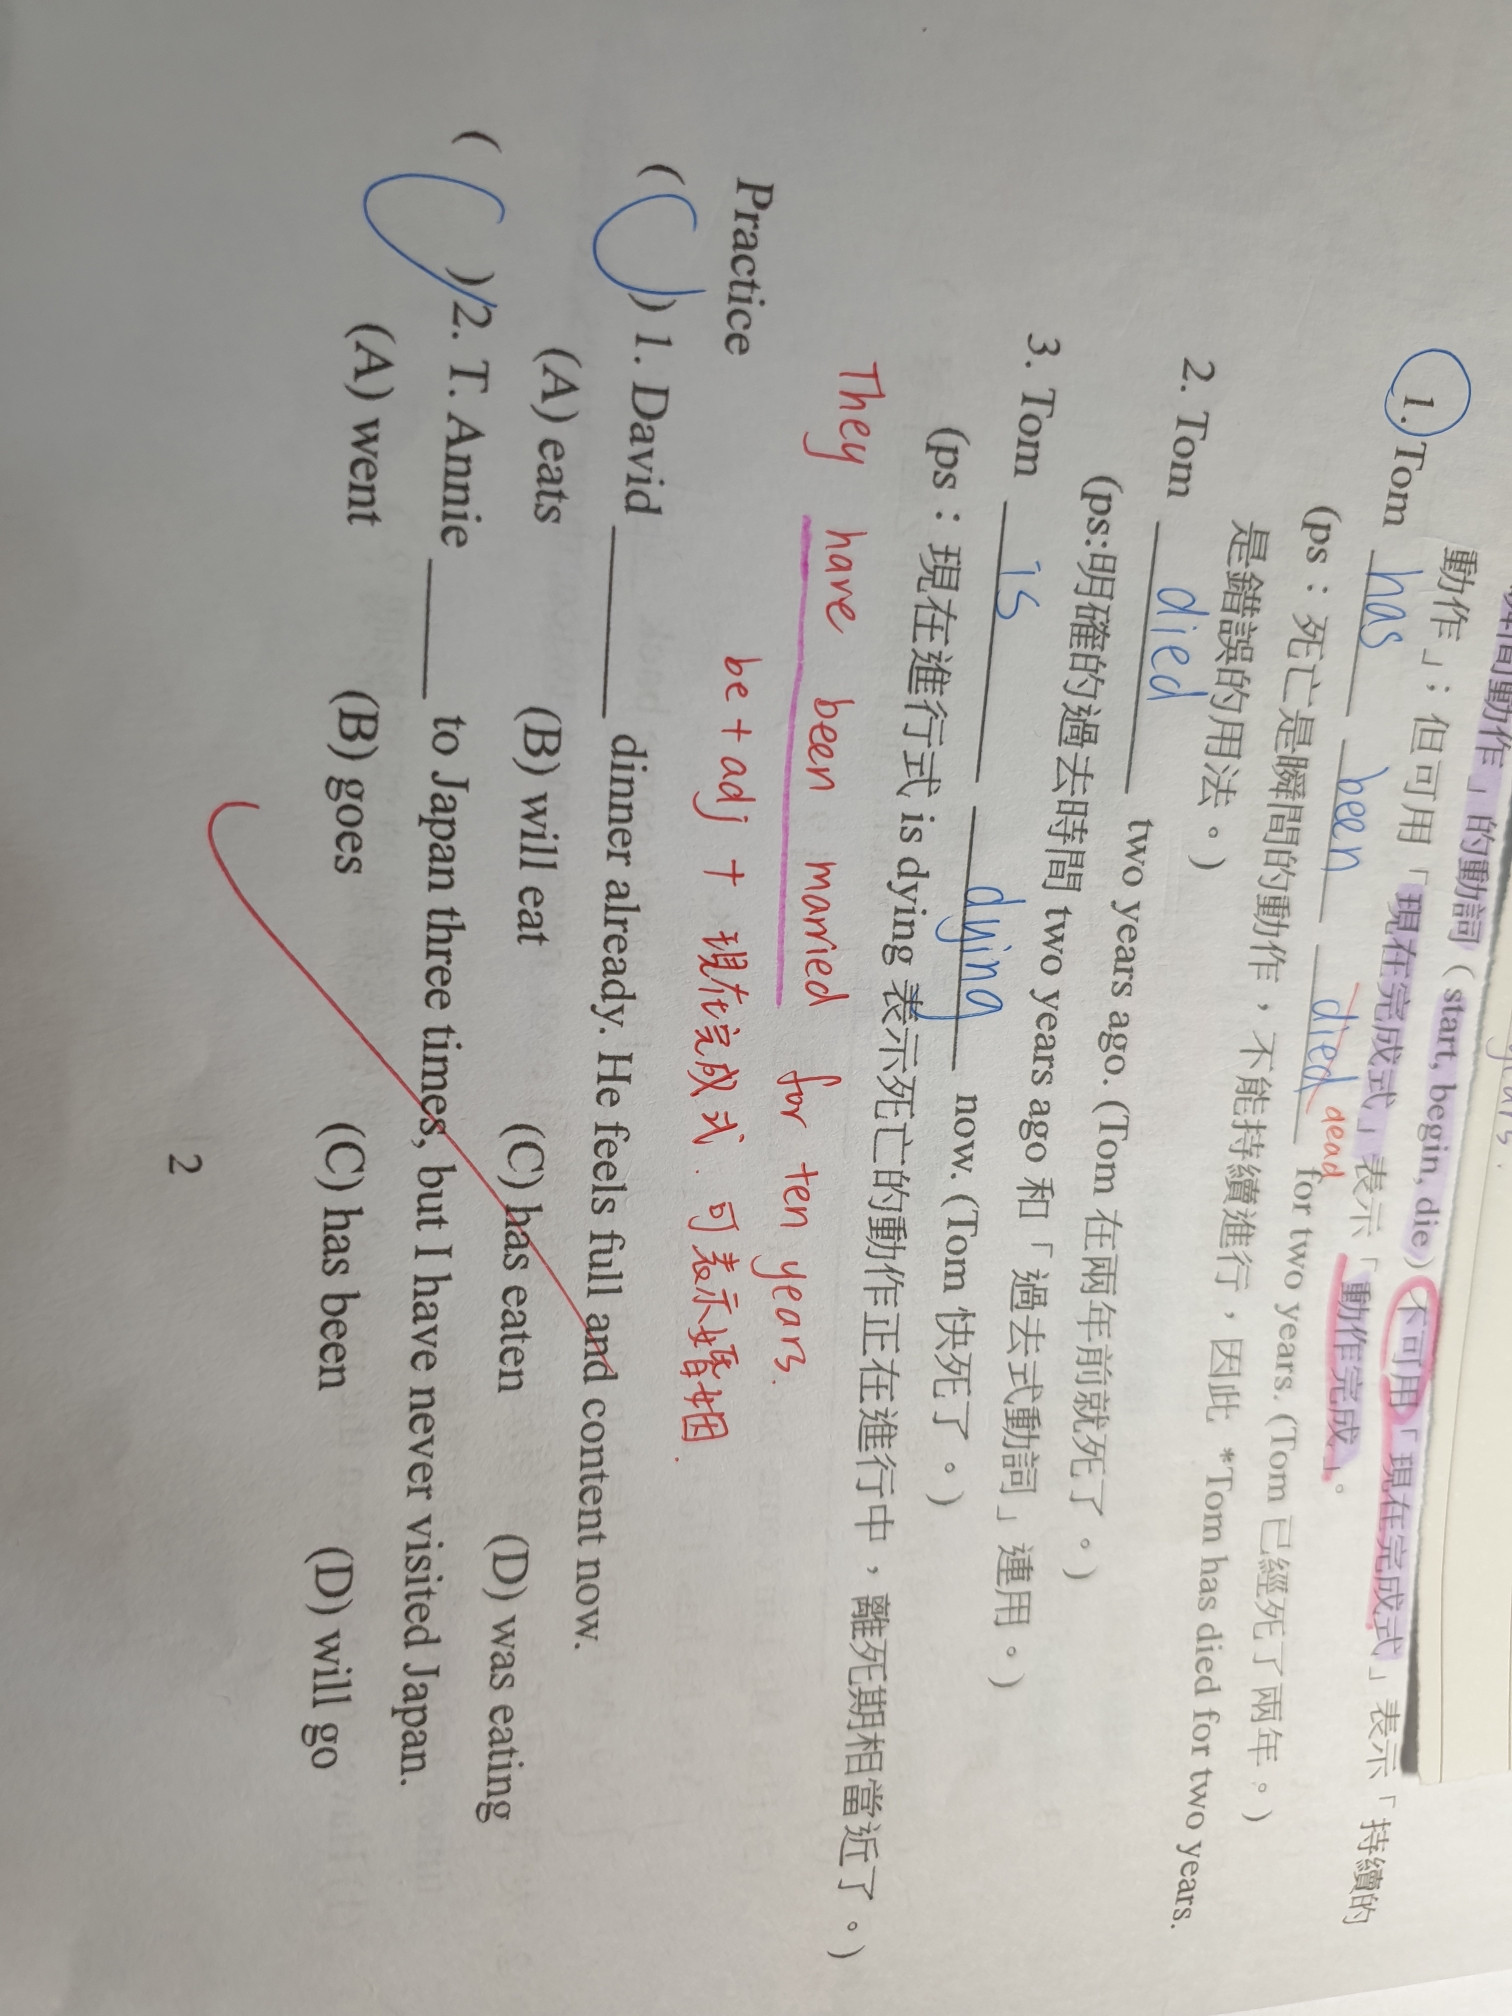 間動作」的動詞（start, begin, die）不可用「現在完成式」表示「持續的
動作」；但可用「現在完成式」表示「動作完成」。
1. Tom has been died dead for two years. (Tom 已經死了兩年。)
(ps：死亡是瞬間的動作，不能持續進行，因此 *Tom has died for two years.
是錯誤的用法。)
2. Tom died two years ago. (Tom 在兩年前就死了。)
(ps:明確的過去時間 two years ago 和「過去式動詞」連用。)
3. Tom is dying now. (Tom 快死了。)
(ps：現在進行式 is dying 表示死亡的動作正在進行中，離死期相當近了。)
They have been married for ten years.
be + adj + 現在完成式. 可表示婚姻.
Practice
( C ) 1. David ______ dinner already. He feels full and content now.
(A) eats (B) will eat (C) has eaten (D) was eating
( C ) 2. T. Annie ______ to Japan three times, but I have never visited Japan.
(A) went (B) goes (C) has been (D) will go
2